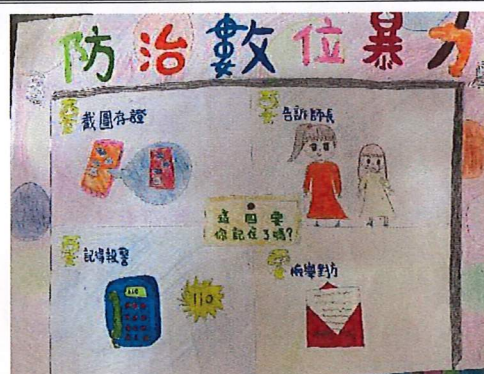 防治數位暴力
截圖存證
告訴師長
這四要
你記住了嗎?
記得報警
110
110
檢舉對方